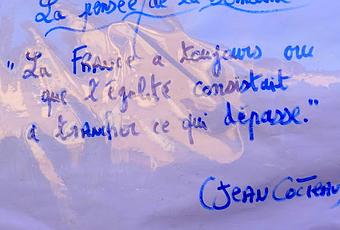 La pensée de la semaine
"La France a toujours cru
que l'égalité consistait
à trancher ce qui dépasse."
(Jean Cocteau